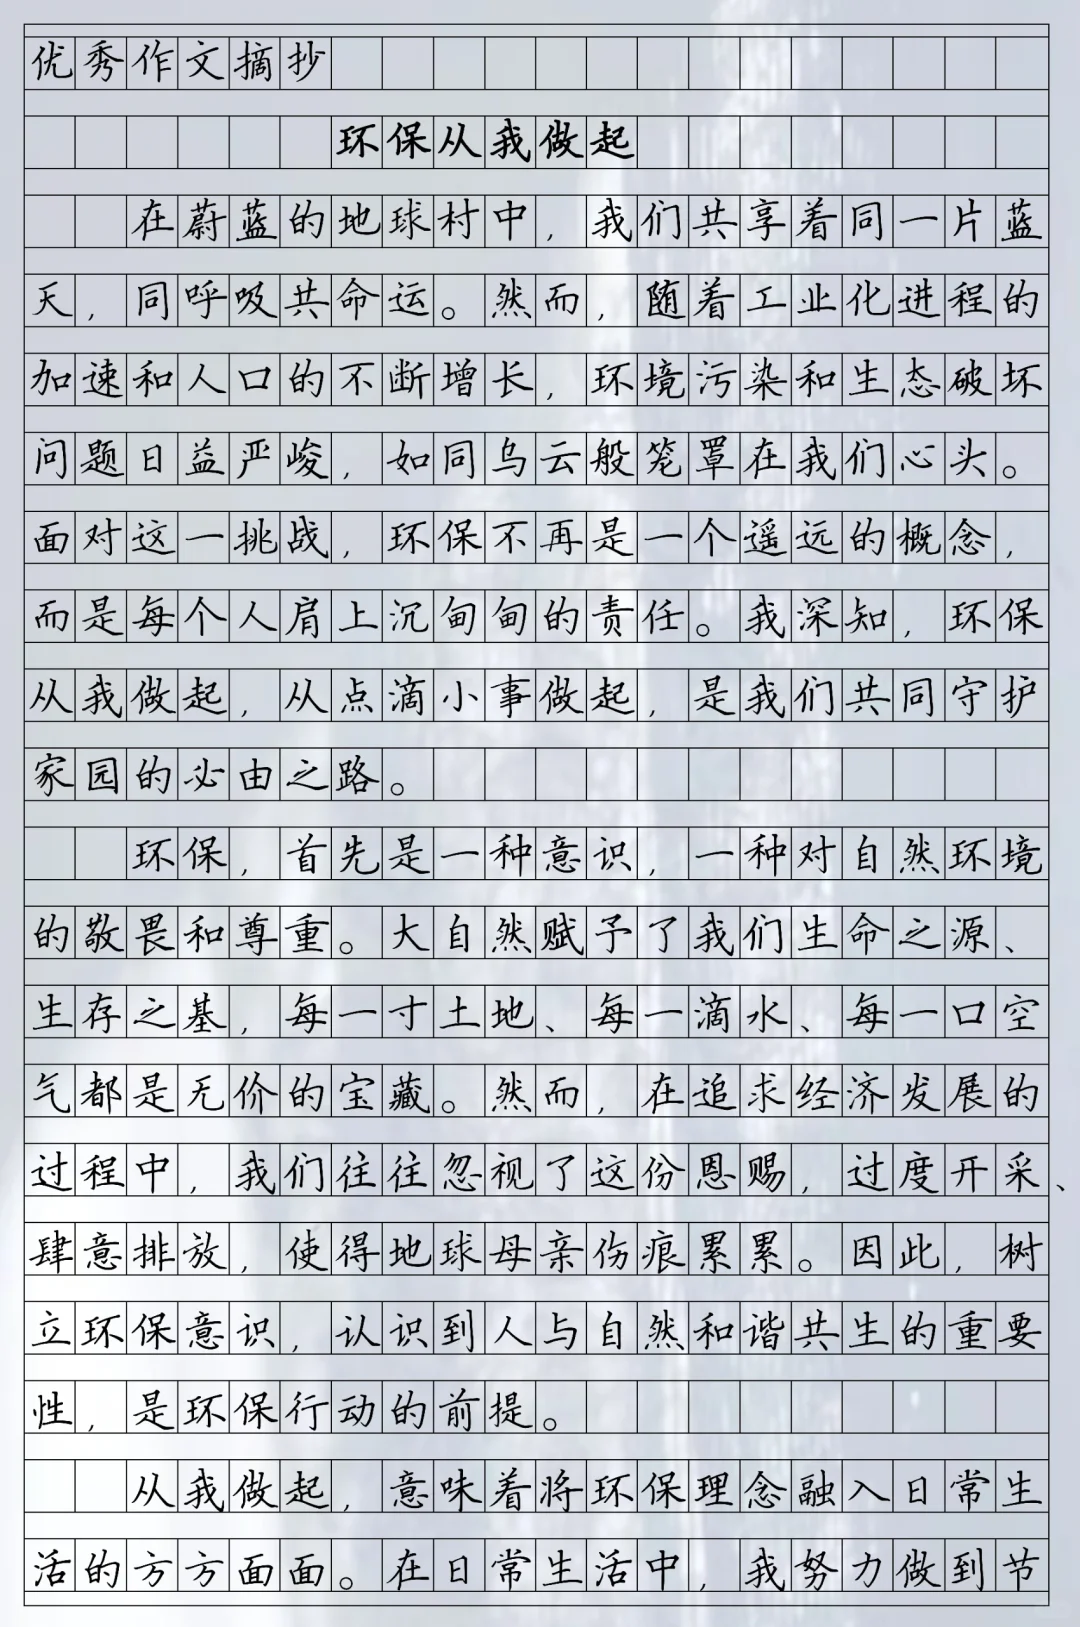 优秀作文摘抄
环保从我做起
在蔚蓝的地球村中，我们共享着同一片蓝
天，同呼吸共命运。然而，随着工业化进程的
加速和人口的不断增长，环境污染和生态破坏
问题日益严峻，如同乌云般笼罩在我们心头。
面对这一挑战，环保不再是一个遥远的概念，
而是每个人肩上沉甸甸的责任。我深知，环保
从我做起，从点滴小事做起，是我们共同守护
家园的必由之路。
环保，首先是一种意识，一种对自然环境
的敬畏和尊重。大自然赋予了我们生命之源、
生存之基，每一寸土地、每一滴水、每一口空
气都是无价的宝藏。然而，在追求经济发展的
过程中，我们往往忽视了这份恩赐，过度开采、
肆意排放，使得地球母亲伤痕累累。因此，树
立环保意识，认识到人与自然和谐共生的重要
性，是环保行动的前提。
从我做起，意味着将环保理念融入日常生
活的方方面面。在日常生活中，我努力做到节